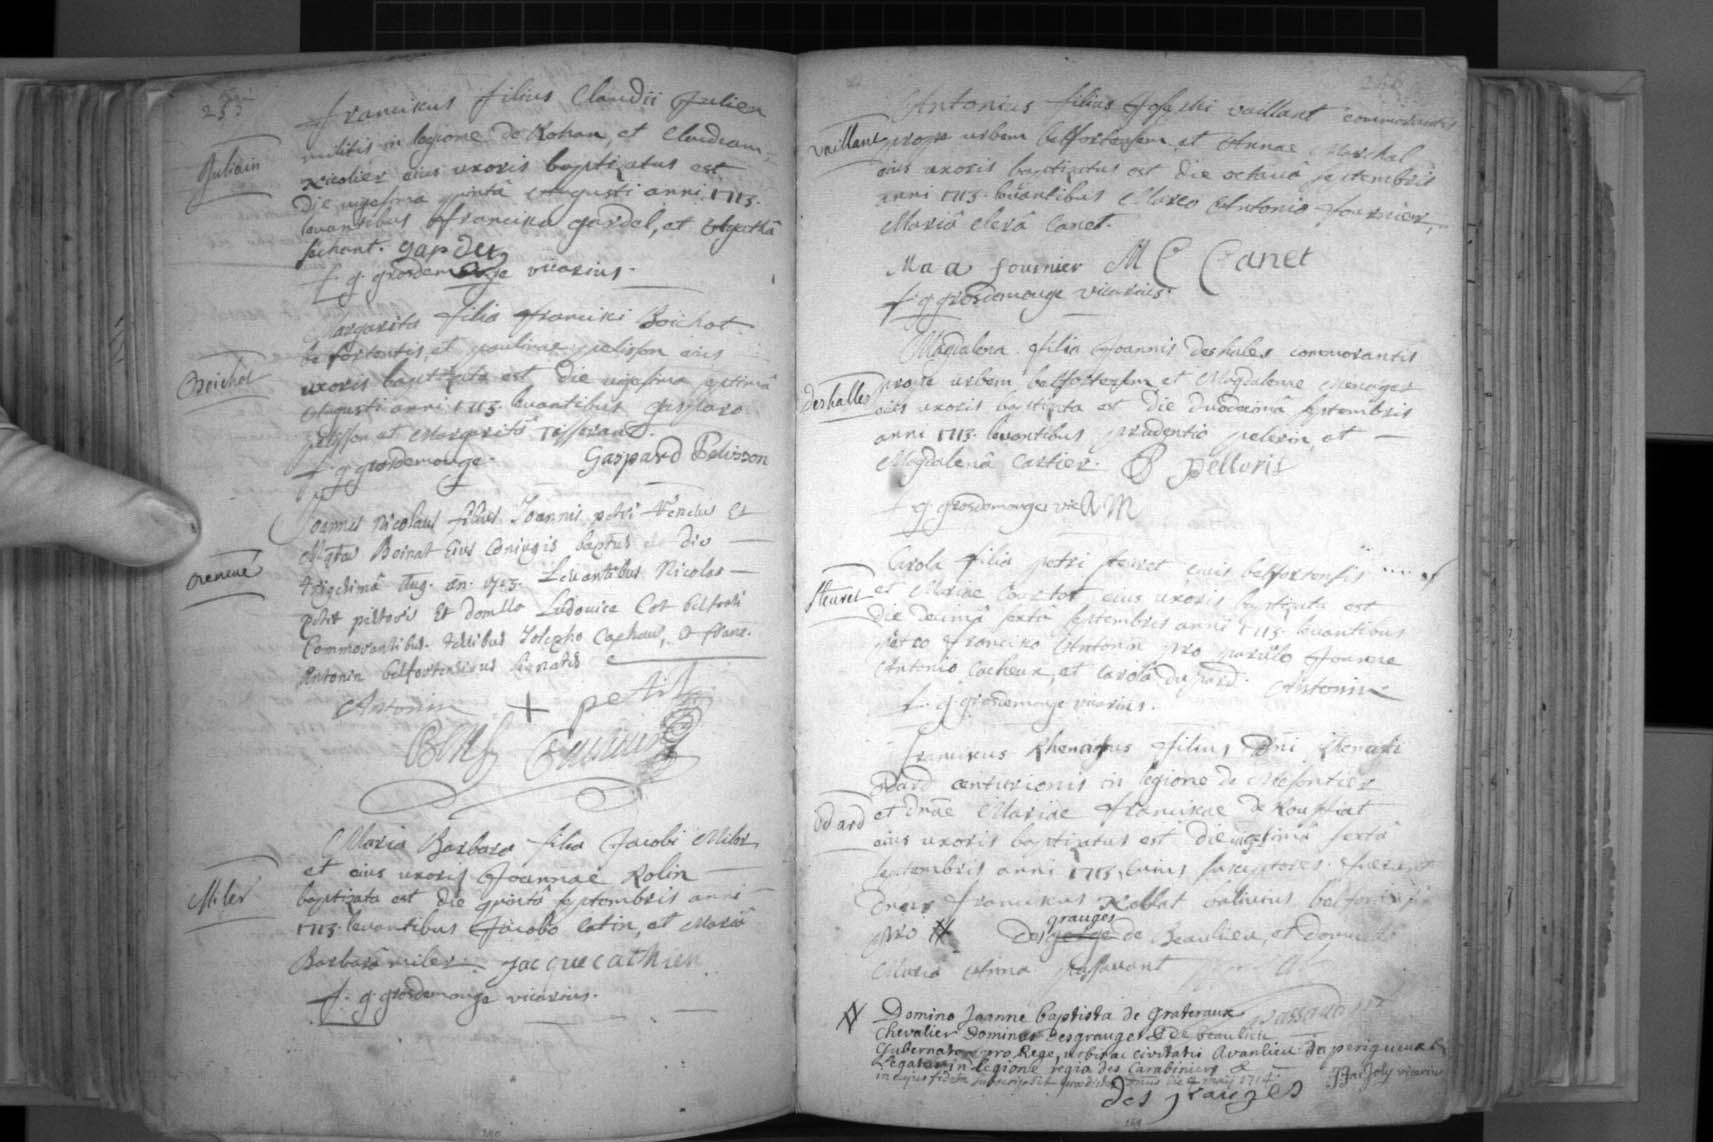 255
Juliain
Franciscus filius Claudii Julien
militis in legione de Rohan, et Claudeam
Nicolier eius uxoris baptizatus est
die vigesima quinta Augusti anni 1713.
levantibus francisco gardel, et Agatha
sechant.
f. g. grosdemange vicarius.
Boichot
Margarita filia francisci Boichot
belfortensis, et paulinae pelisson eius
uxoris baptizata est die vigesima septima
Augusti anni 1713. levantibus gasparo
pelisson et Margarita Tisserand.
f. g. grosdemouge. Gaspard Pelisson
Joannes Nicolaus filius Joannis petri et
Boinat Eius Conjugis bapt die
trigesimâ Aug. an. 1713. Levantibus Nicolao
petit pistoris Et dom Ludovica belforti
Commorantibus. testibus Josepho Cacheux, et franc.
Antonin belfortensibus signatis
Antonin + petit
Miler
Maria Barbara filia Jacobi Miler
et eius uxoris Joannae Rolin
baptizata est die quinta septembris anni
1713. levantibus Jacobo Catin, et Maria
Barbara miler. Jacque cathien
f. g. grosdemouge vicarius.
256
vaillant
Antonius filius Josephi vaillant commorantis
prope urbem belfortensem et Annae Marchal
eius uxoris baptizatus est die octavâ septembris
anni 1713. levantibus Marco Antonio fournier,
Mariâ Clerâ Canet.
Ma a fournier M C Canet
f. g. grosdemouge vicarius.
deshalles
Magdalena filia Joannis deshales commorantis
prope urbem belfortensem et Magdalenae Menager
eius uxoris baptizata est die duodecimâ septembris
anni 1713. levantibus prudentio pelerin, et
Magdalenâ Cartier. P pelleris
f g grosdemouge vic A M
fleuret
Carola filia petri fleuret civis belfortensis
et Mariae Courtot eius uxoris baptizata est
die decimâ sextâ septembris anni 1713. levantibus
petro francisco Antonin pro parvulo Joanne
Antonio Cacheux, et carolâ du pard. Antonin
f. g. grosdemouge vicarius.
Odard
franciscus Rhenatus filius Dni Rhenati
Odard centurionis in legione de
et Dnae Mariae franciscae de Rouffiat
eius uxoris baptizatus est die vigesimâ sextâ
septembris anni 1713, cuius susceptores fuerunt
Dnus franciscus Noblat balivius belfortensis
pro # Des granges de Beaulieu, et domicella
Maria Anna passavant
passavant
# Domino Joanne baptista de grateraux
Chevalier Dominus Desgranges & de beaulieu
Gubernator pro Rege, urbis ac civitatis in perigueux
Legatus in legione regia des Carabiniers &
in cujus fidem subscripsit praedictus Dnus die 4 maij 1714. J Jac Joly vicarius
des granges